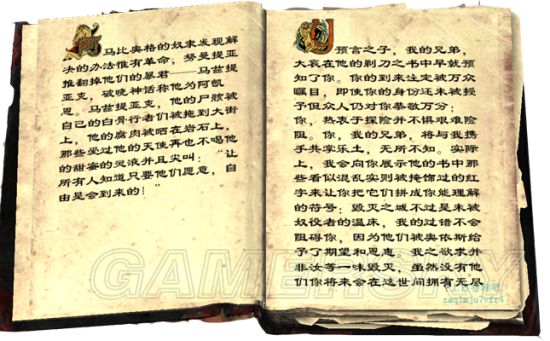 马比奥格的奴隶发现解
决的办法惟有革命，努曼提亚
推翻掉他们的暴君——马兹提
亚克，破晓神话称他为阿凯
恩。马兹提亚克，他的尸骸被
自己的白骨行者们被拖到大街
上，他的腐肉被晒在岩石上，
那些爱过他的天使再也不喝他
的甜蜜的灵液并且尖叫：“让
所有人知道只要他们愿意，自
由是会到来的！”
预言之子，我的兄弟，
大衮在他的剃刀之书中早就预
知了你。你的到来注定被万众
瞩目，即使你的身份还未被授
予但众人仍对你恭敬万分：
你，热衷于探险并不惧艰难险
阻。你，我的兄弟，将与我携
手共掌乐土，无所不知。实际
上，我会向你展示他的书中那
些看似混乱实则被掩饰过的红
字来让你把它们拼成你能理解
的符号：毁灭之城不过是未被
奴役者的温床，我的过错不会
阻碍你，因为他们被奥依斯给
予了期望和恩惠 我之欲求并
非汝等一味毁灭，虽然没有他
们你将来会在这世间拥有无尽
GAMERSKY
zaqimju7vfr4